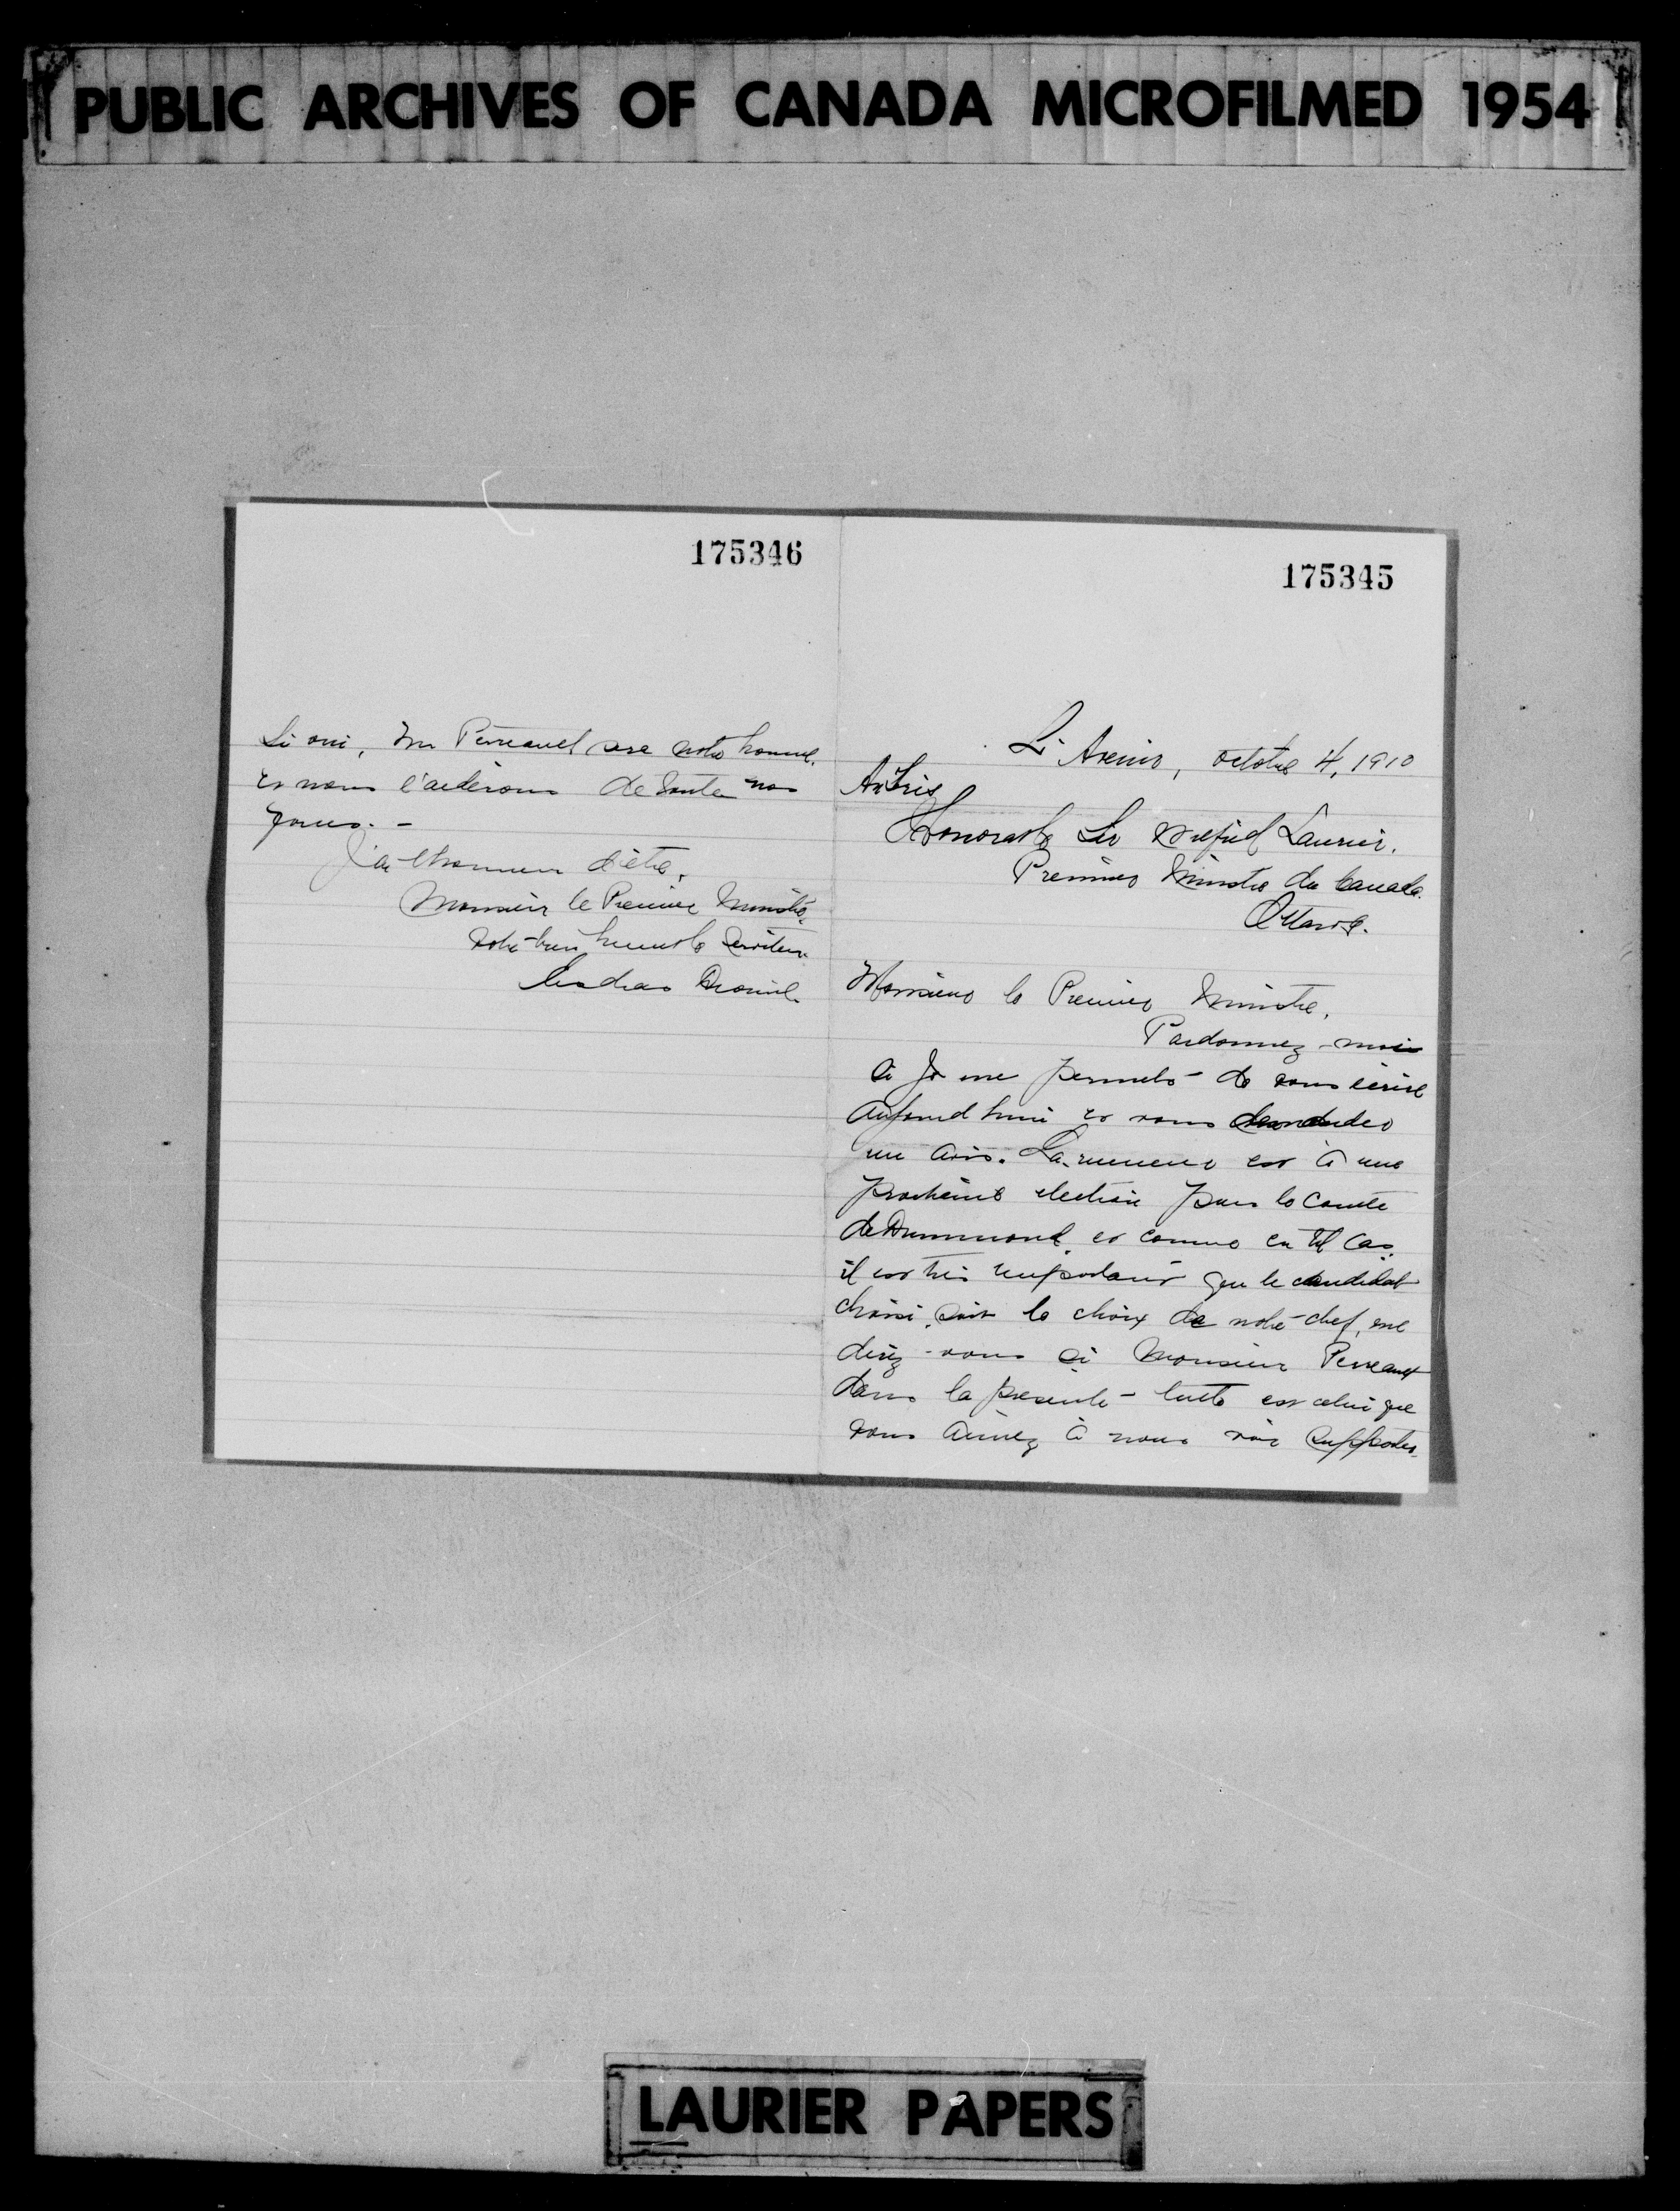 PUBLIC ARCHIVES OF CANADA MICROFILMED 1954
175345
L'Avenir, octobre 4, 1910
Au Très
Honorable Sir Wilfrid Laurier.
Premier Ministre du Canada.
Ottawa.
Monsieur le Premier Ministre,
Pardonnez-moi
si je me permets de vous écrire
aujourd'hui et vous demander
un avis. La rumeur est à une
prochaine election pour le comté
de Drummond, et comme en tel cas,
il est très important que le candidat
choisi, soit le choix de notre chef, me
direz-vous si Monsieur Perreault
dans la presente lutte est celui que
vous aimez à nous voir supporter.
175346
Si oui, Mr Perreault sera notre homme,
et nous l'aiderons de toutes nos
forces. -
J'ai l'honneur d'être,
Monsieur le Premier Ministre,
votre bien humble serviteur
LAURIER PAPERS